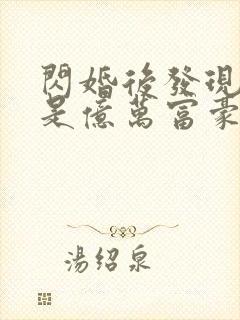 閃婚後發現
是億萬富豪
湯绍泉